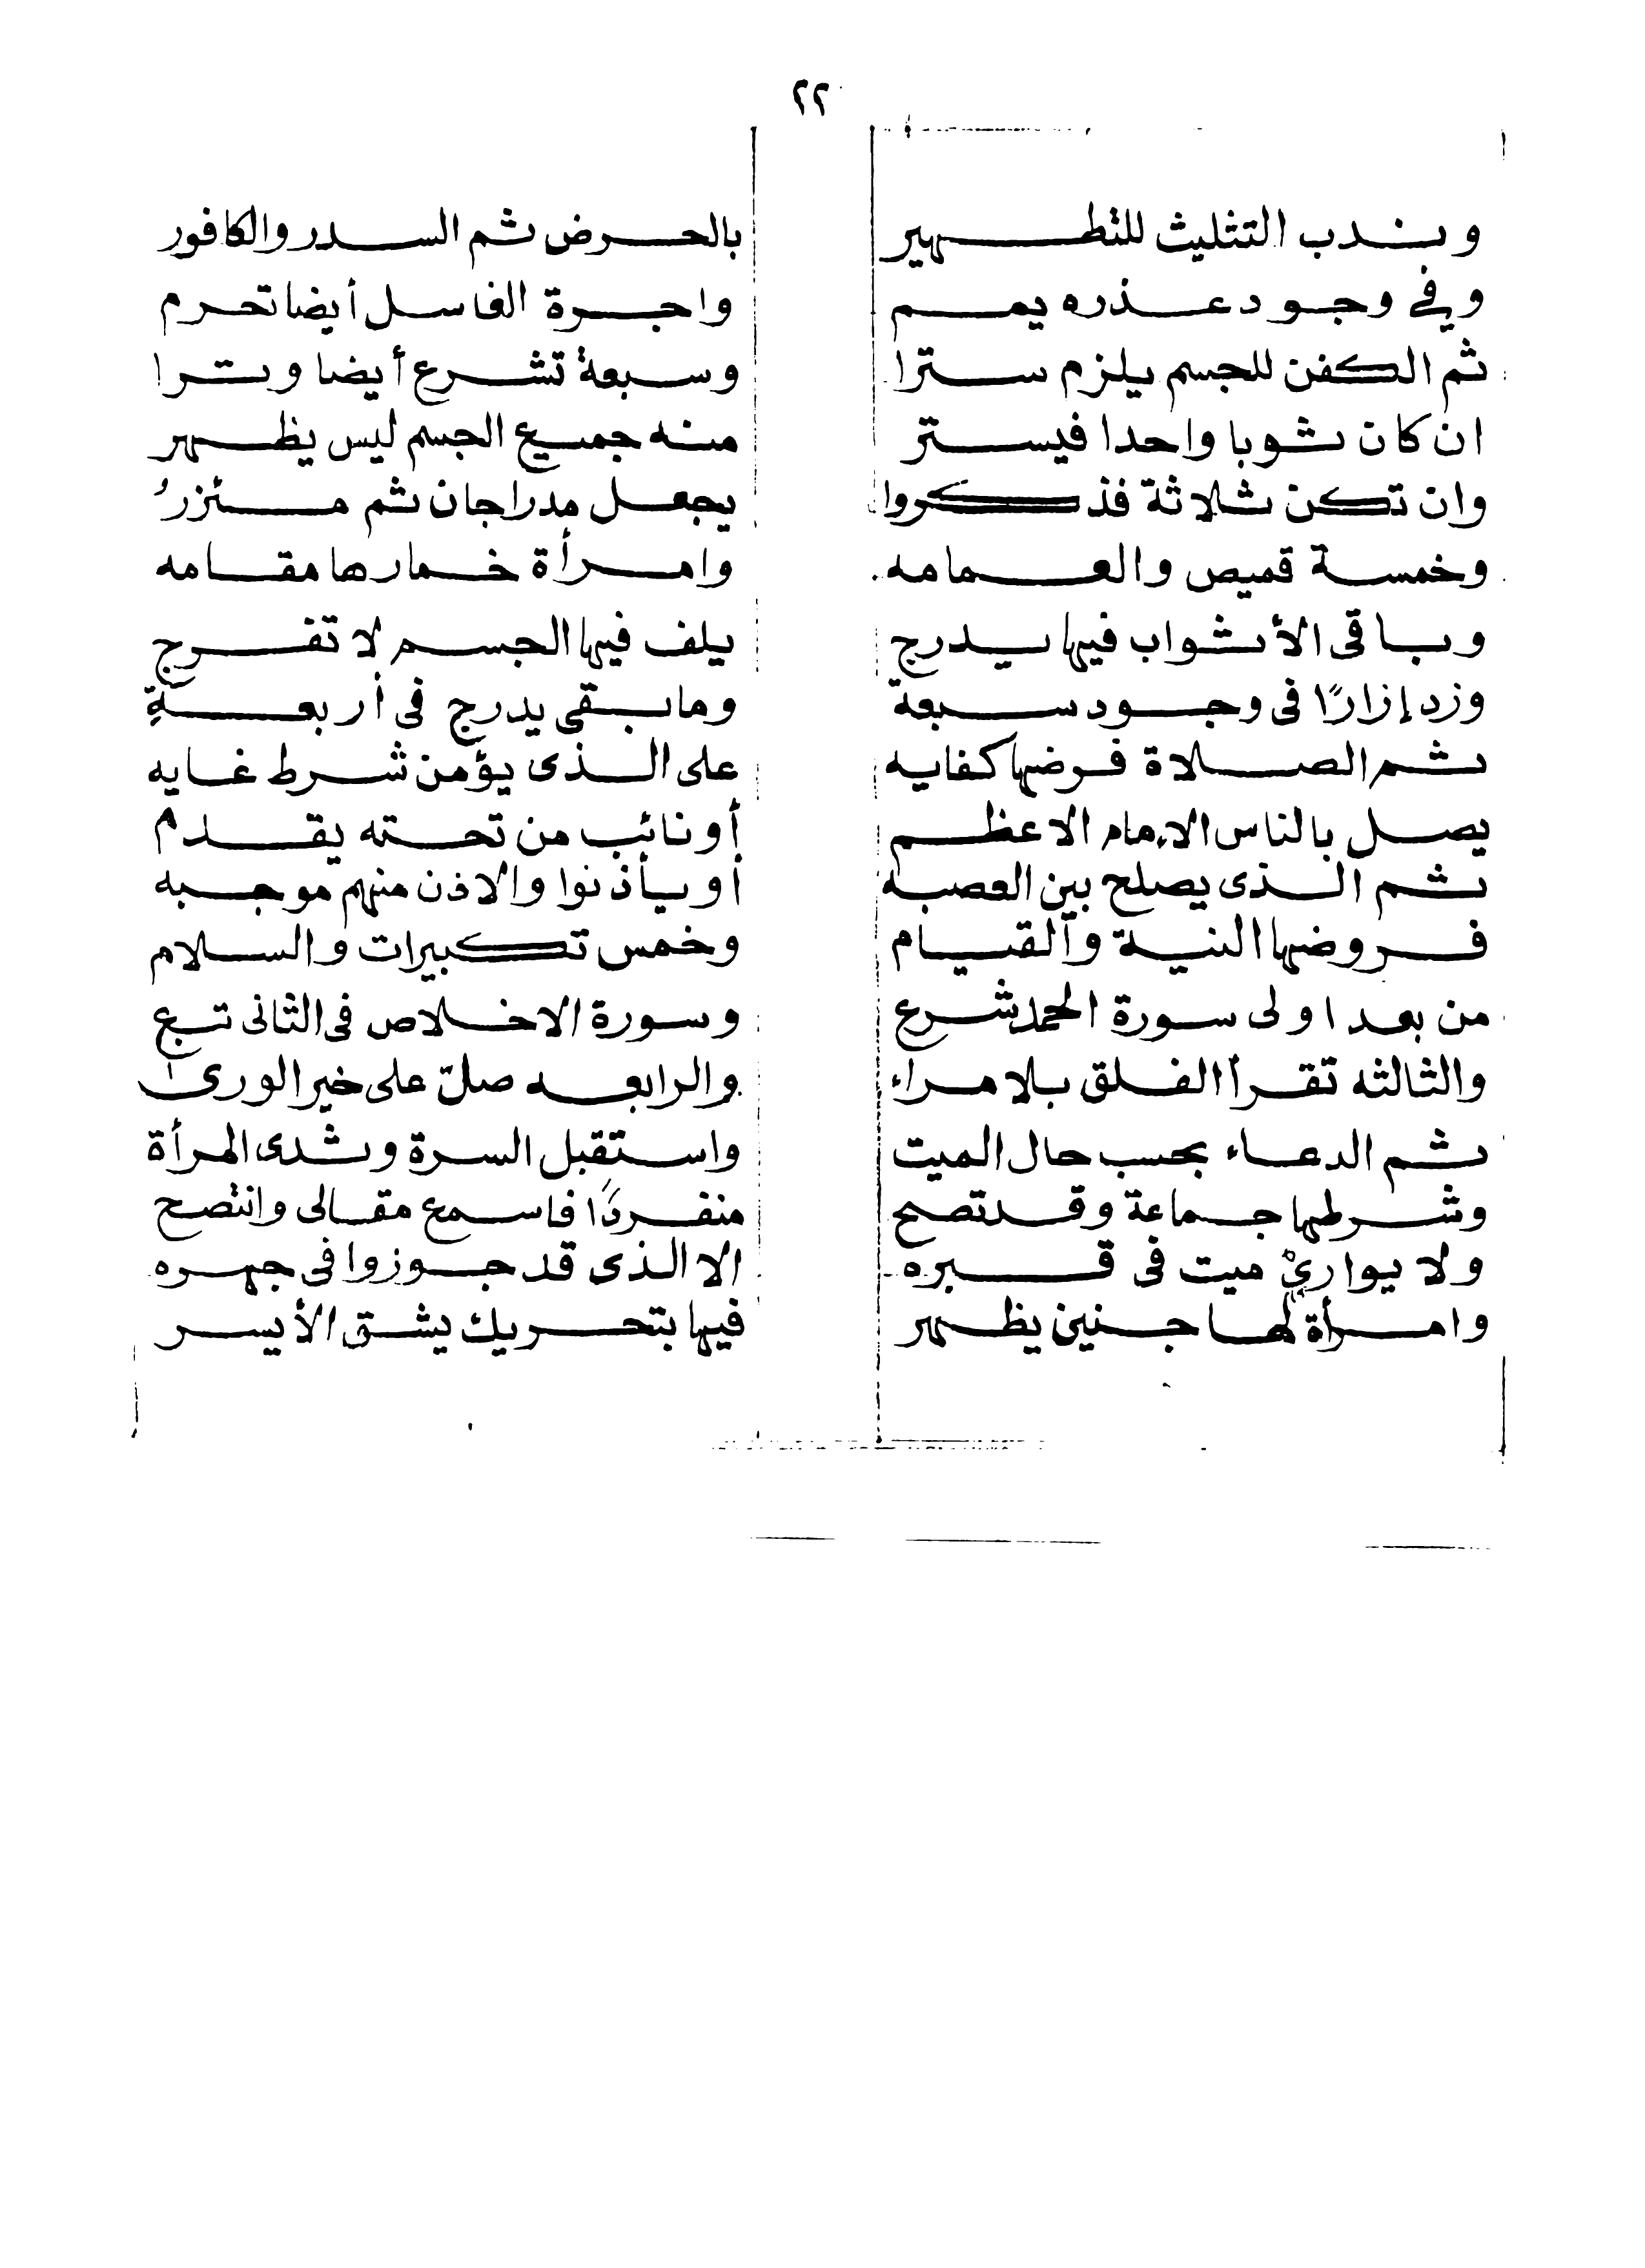 ٢٢
ويندب التثليث للتطهير بالحرض ثم السدر والكافور
وفي وجود عذره يمم واجرة الغاسل أيضا تحرم
ثم الكفن للجسم يلزم سترا وسبعة تشرع أيضا وترا
ان كان ثوبا واحدا فيستر منه جميع الجسم ليس يظهر
وان تكن ثلاثة فذكروا يجعل مدراجان ثم مئزرُ
وخمسة قميص والعمامه وامرأة خمارها مقامه
وباقى الأثواب فيها يدرج يلف فيها الجسم لا تفرج
وزد إزارًا فى وجود سبعة وما بقى يدرج فى أربعةٍ
ثم الصلاة فرضها كفايه على الذى يؤمن شرط غايه
يصل بالناس الإمام الاعظم أو نائب من تحته يقدم
ثم الذى يصلح بين العصبه أو يأذنوا والاذن منهم موجبه
فروضها النية والقيام وخمس تكبيرات والسلام
من بعد اولى سورة الحمد شرع وسورة الاخلاص فى الثانى تبع
والثالثه تقرأ الفلق بلا مراء والرابعه صلّ على خير الورى
ثم الدعاء بحسب حال الميت واستقبل السرة وثدى المرأة
وشرطها جماعة وقد تصح منفردًا فاسمع مقالى وانتصح
ولا يواريْ ميت فى قبره الا الذى قد جوزوا فى جهره
وامرأة لها جنين يظهر فيها بتحريك يشق الأيسر